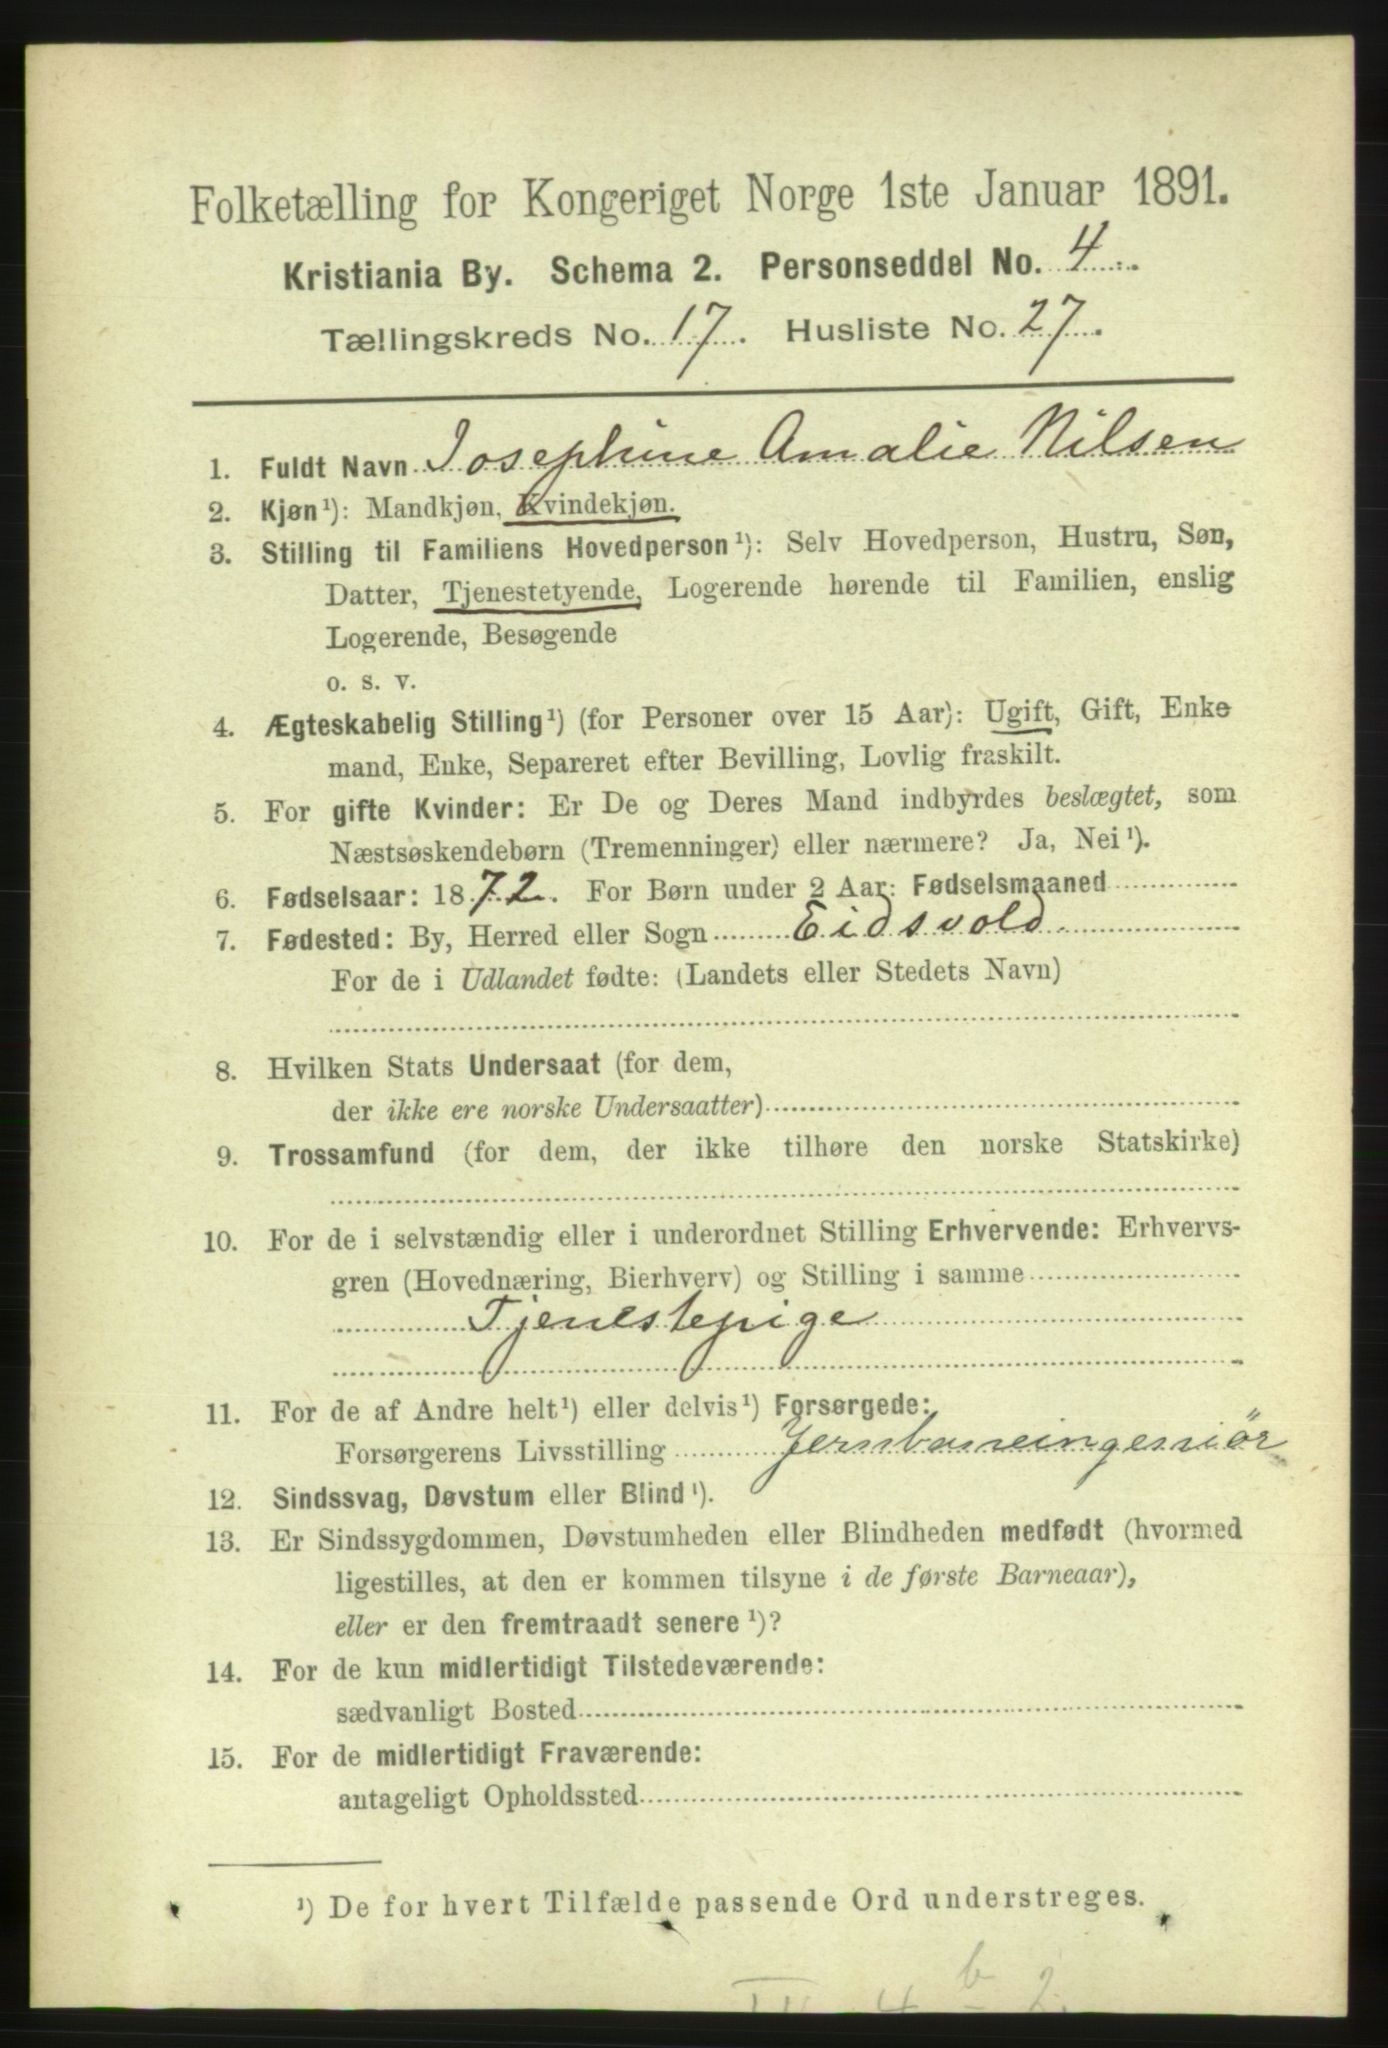 Folketælling for Kongeriget Norge 1ste Januar 1891.
Kristiania By. Schema 2. Personseddel No. 4.
Tællingskreds No. 17. Husliste No. 27.
1. Fuldt Navn Josephine Amalie Nilsen
2. Kjøn ¹): Mandkjøn, Kvindekjøn.
3. Stilling til Familiens Hovedperson ¹): Selv Hovedperson, Hustru, Søn,
Datter, Tjenestetyende, Logerende hørende til Familien, enslig
Logerende, Besøgende
o. s. v.
4. Ægteskabelig Stilling ¹) (for Personer over 15 Aar): Ugift, Gift, Enke
mand, Enke, Separeret efter Bevilling, Lovlig fraskilt.
5. For gifte Kvinder: Er De og Deres Mand indbyrdes beslægtet, som
Næstsøskendebørn (Tremenninger) eller nærmere? Ja, Nei ¹).
6. Fødselsaar: 1872. For Børn under 2 Aar: Fødselsmaaned
7. Fødested: By, Herred eller Sogn Eidsvold.
For de i Udlandet fødte: (Landets eller Stedets Navn)
8. Hvilken Stats Undersaat (for dem,
der ikke ere norske Undersaatter)
9. Trossamfund (for dem, der ikke tilhøre den norske Statskirke)
10. For de i selvstændig eller i underordnet Stilling Erhvervende: Erhvervs-
gren (Hovednæring, Bierhverv) og Stilling i samme
Tjenestepige
11. For de af Andre helt ¹) eller delvis ¹) Forsørgede:
Forsørgerens Livsstilling Jernbaneingeniör
12. Sindssvag, Døvstum eller Blind ¹).
13. Er Sindssygdommen, Døvstumheden eller Blindheden medfødt (hvormed
ligestilles, at den er kommen tilsyne i de første Barneaar),
eller er den fremtraadt senere ¹)?
14. For de kun midlertidigt Tilstedeværende:
sædvanligt Bosted
15. For de midlertidigt Fraværende:
antageligt Opholdssted
¹) De for hvert Tilfælde passende Ord understreges.
4 b 2.